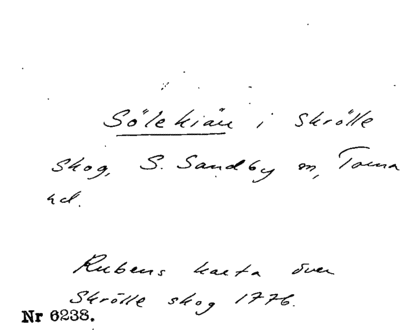 Sölekiän i Skrölle
skog, S. Sandby sn, Torna
hd.
Rubens karta över
Skrölle skog 1776.
Nr 6238.